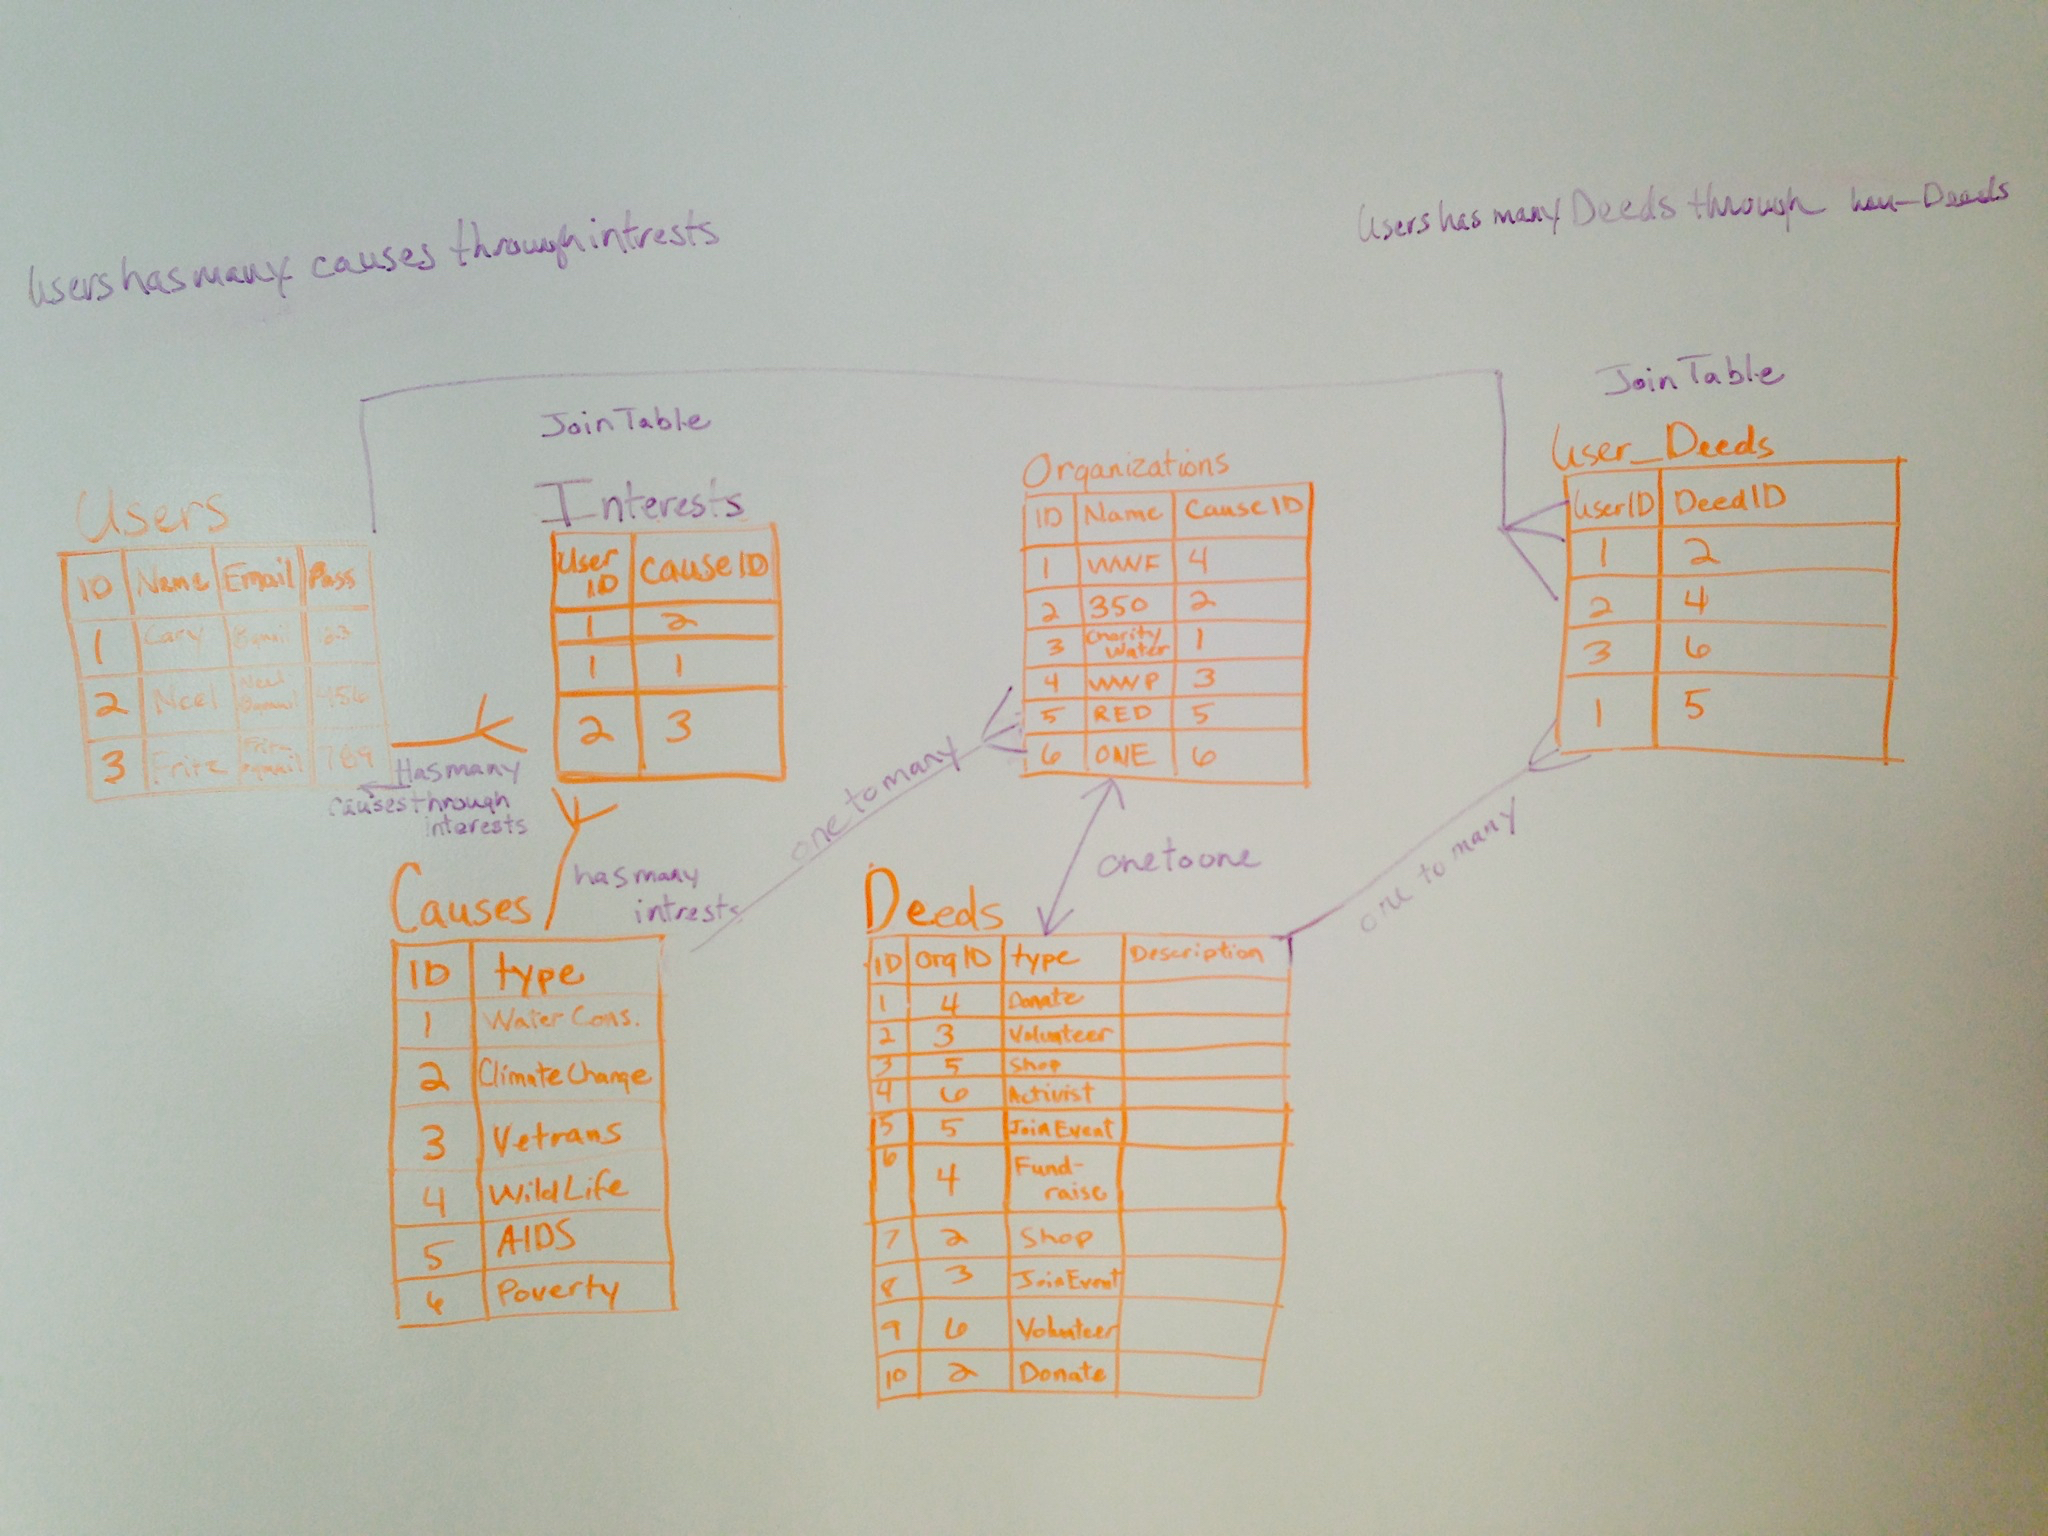 Users has many causes through intrests
Users has many Deeds through
Join Table
Join Table
Users
ID Name Email Pass
1 Cary Gmail
2 Neel Neel Gmail 456
3 Fritz Fritz Gmail 789
Has many
causes through
interests
Interests
User ID Cause ID
1 2
1 1
2 3
Organizations
ID Name Cause ID
1 WWF 4
2 350 2
3 Charity Water 1
4 WWP 3
5 RED 5
6 ONE 6
User_Deeds
User ID Deed ID
1 2
2 4
3 6
1 5
one to many
one to one
one to many
has many
intrests
Causes
ID type
1 Water Cons.
2 Climate Change
3 Vetrans
4 Wild Life
5 AIDS
6 Poverty
Deeds
ID Org ID type Description
1 4 Donate
2 3 Volunteer
3 5 Shop
4 6 Activist
5 5 Join Event
6 4 Fund-
raise
7 2 Shop
8 3 Join Event
9 6 Volunteer
10 2 Donate